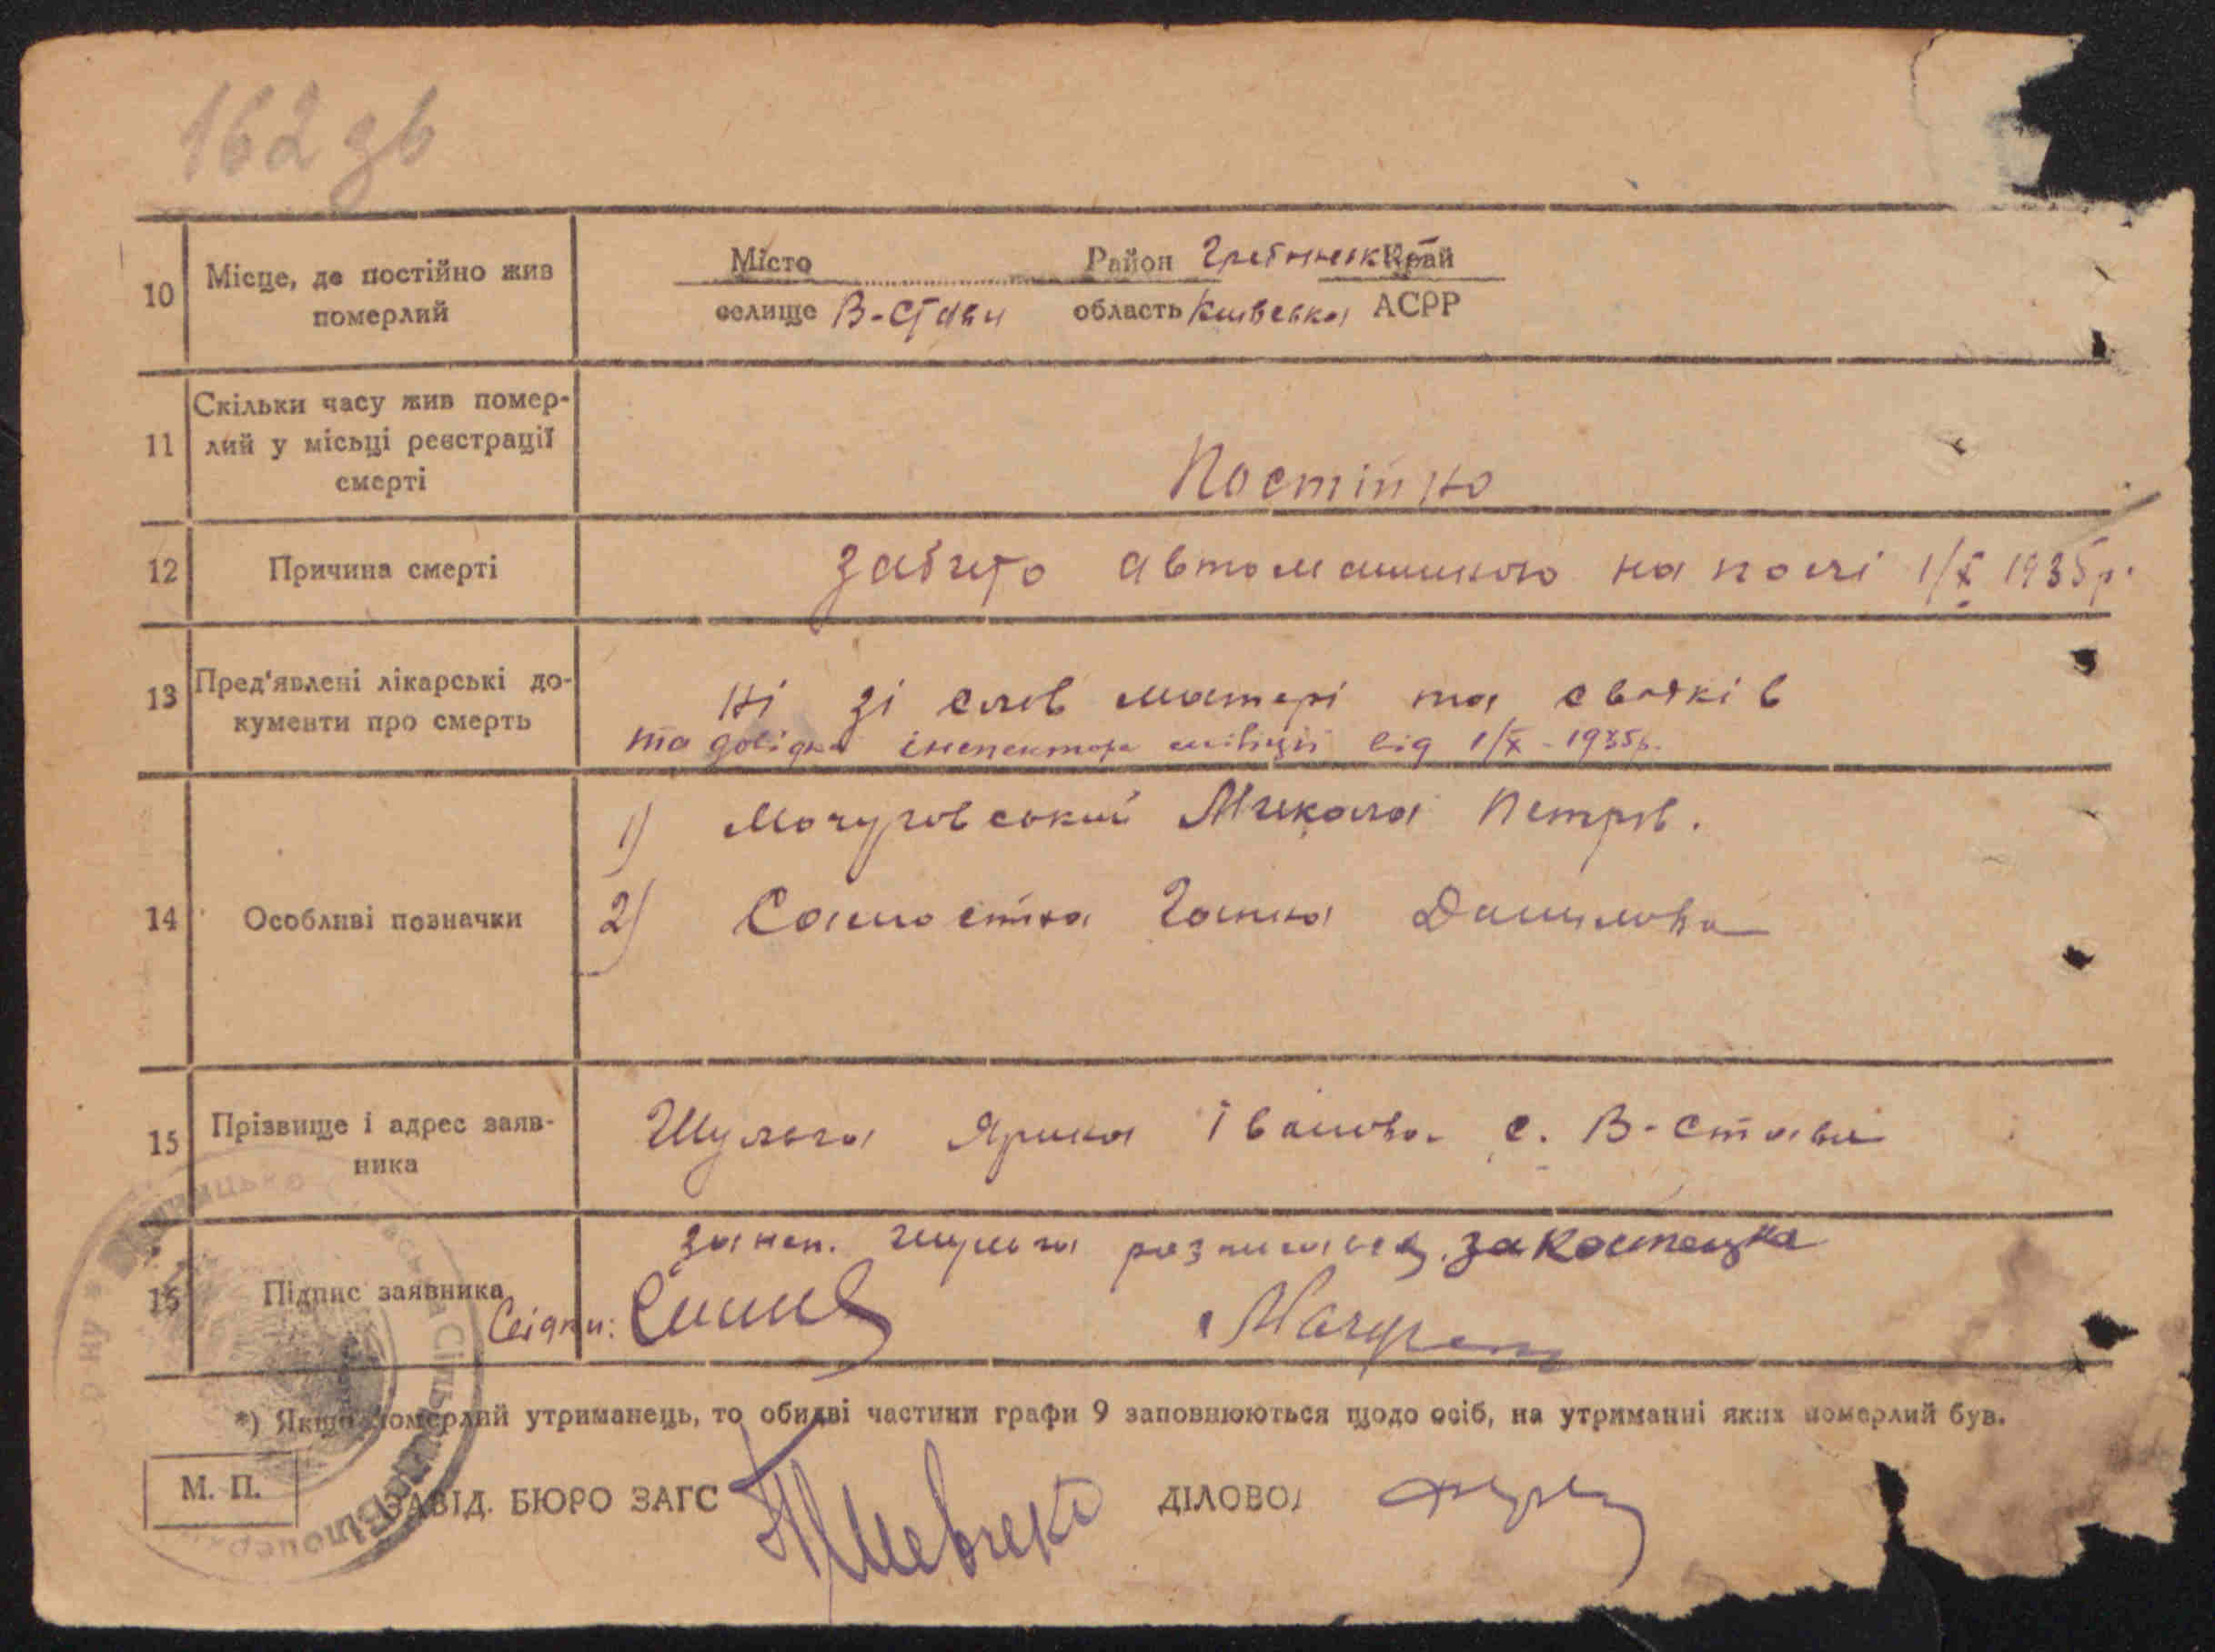 162 зв
10 Місце, де постійно жив померлий
Місто Район Гребінськ Край
селище В-Стави область Київська АСРР
11 Скільки часу жив помер-
лий у місьці реєстрації
смерті
Постійно
12 Причина смерті
Забито автомашиною на полі 1/X 1935р.
13 Пред'явлені лікарські до-
кументи про смерть
Ні зі слів матері та свояків
та довідка інспектора міліції від 1/X - 1935р.
14 Особливі позначки
1) Мачуговський Микола Петров.
2) Самостна Ганна Данилова
15 Прізвище і адрес заяв-
ника
Шульга Ярина Іванова с. В-Стави
16 Підпис заявника
за неп. Шульга розписавсь
Свідки:
*) Якщо померлий утриманець, то обидві частини графи 9 заповнюються щодо осіб, на утриманні яких померлий був.
М. П.
ЗАВІД. БЮРО ЗАГС Шевченко ДІЛОВОД